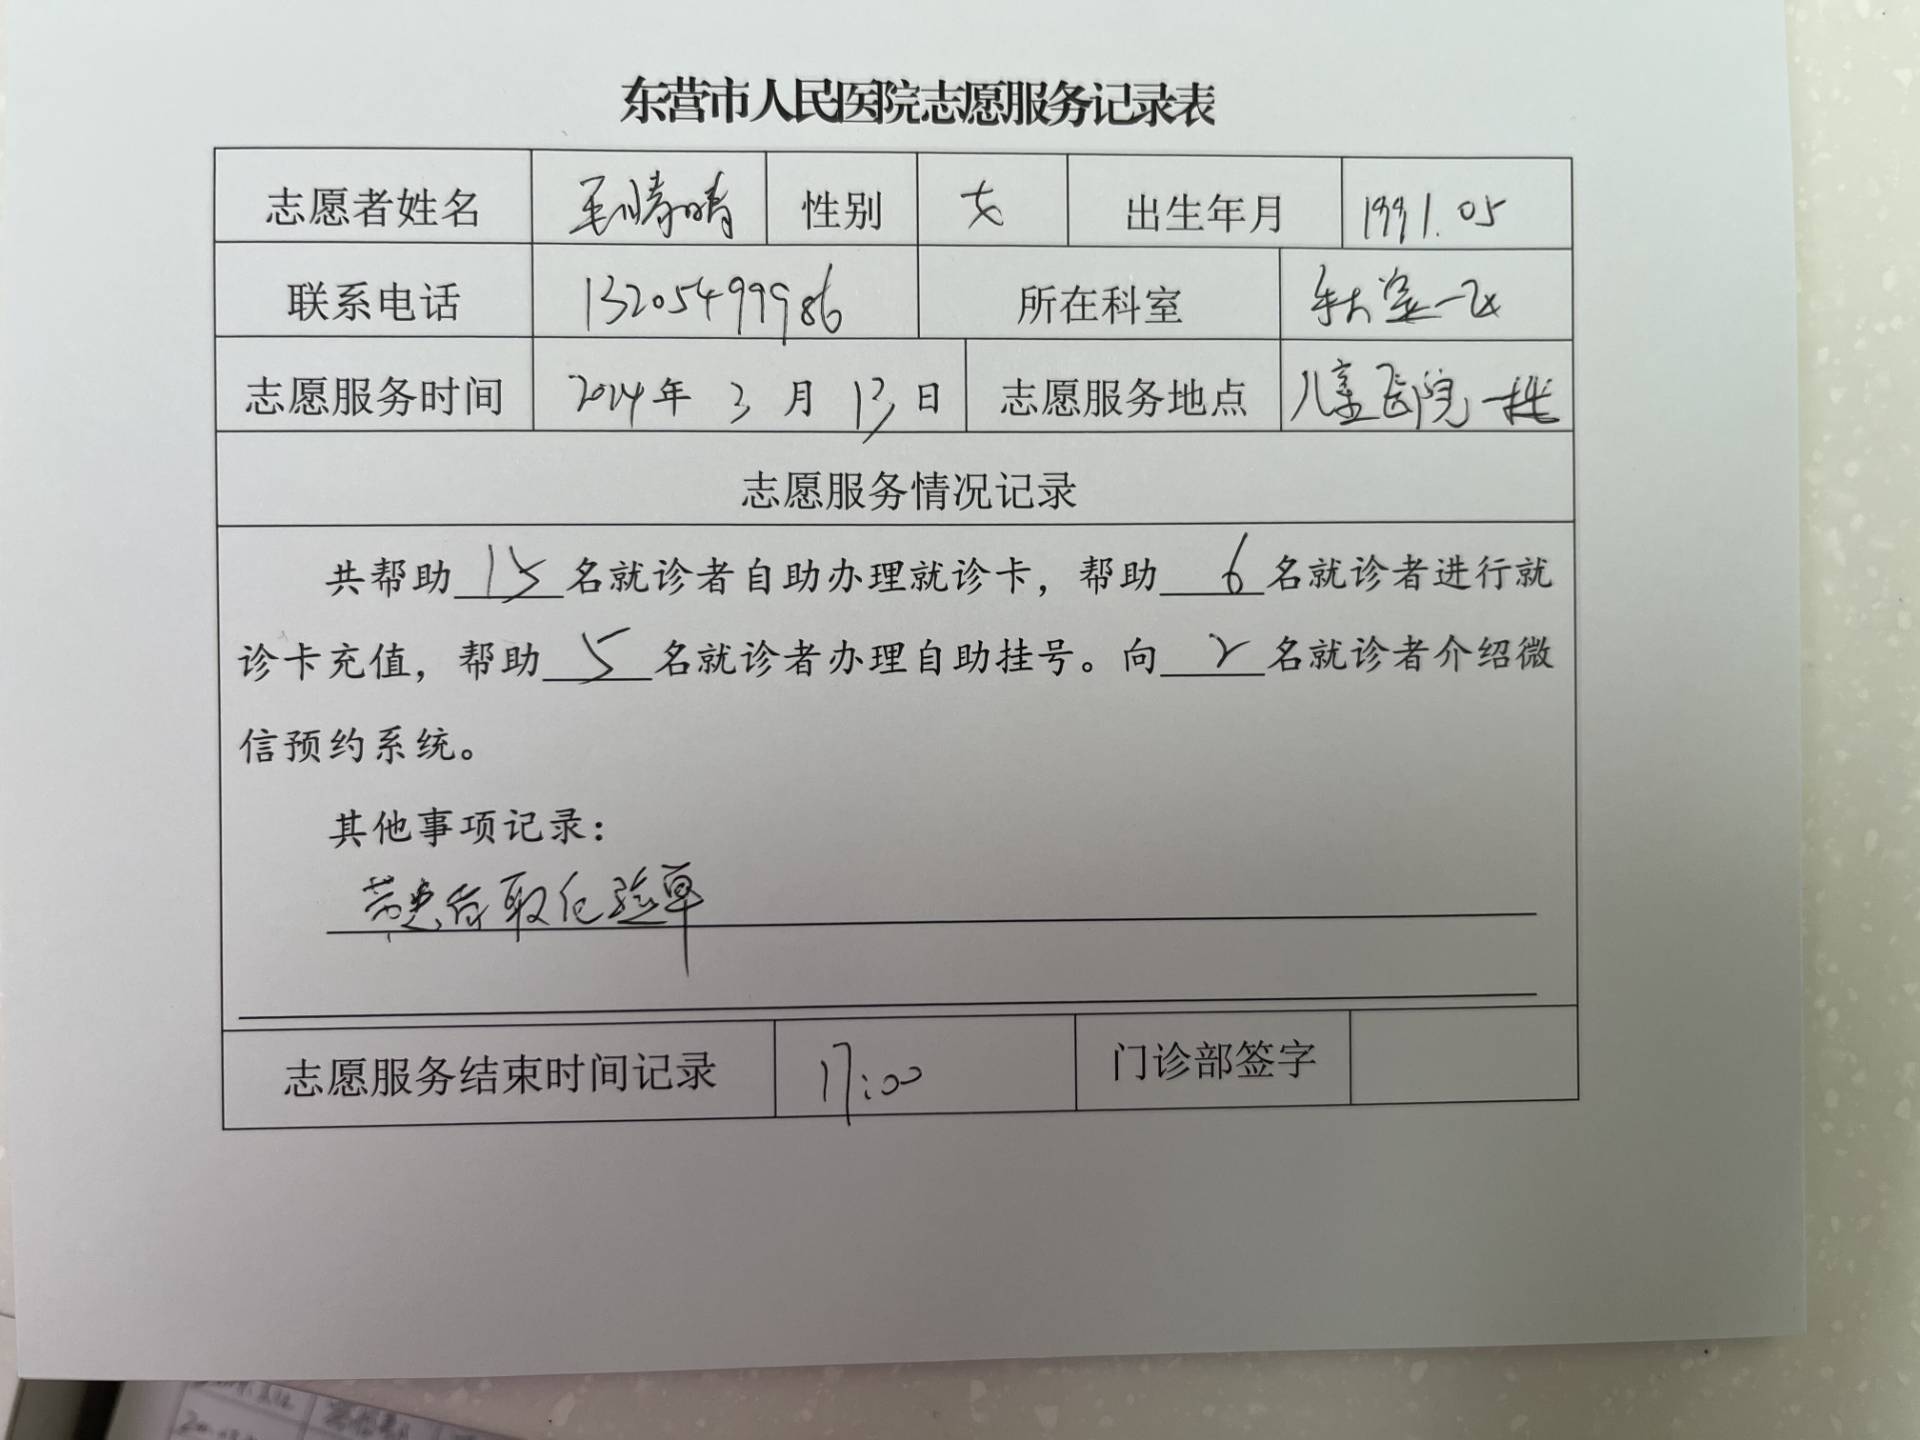 东营市人民医院志愿服务记录表
志愿者姓名 毛晴晴 性别 女 出生年月 1991.05
联系电话 13205499986 所在科室 科室一区
志愿服务时间 2024年 3 月 13 日 志愿服务地点 儿童医院一楼
志愿服务情况记录
共帮助 15 名就诊者自助办理就诊卡，帮助 6 名就诊者进行就
诊卡充值，帮助 5 名就诊者办理自助挂号。向 2 名就诊者介绍微
信预约系统。
其他事项记录：
带患者取化验单
志愿服务结束时间记录 17:00 门诊部签字